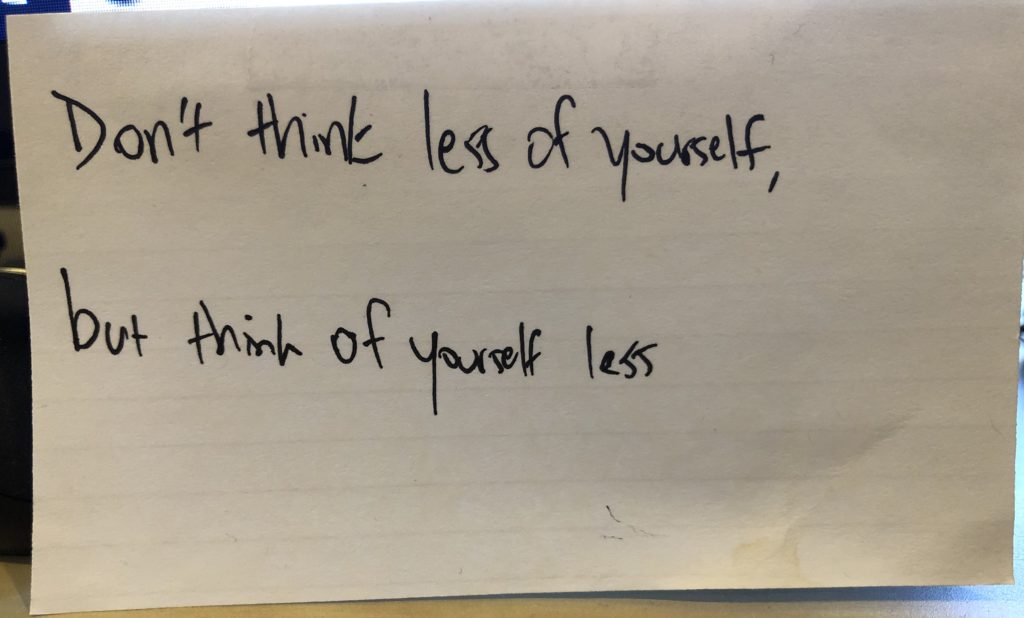 Don't think less of yourself,
but think of yourself less